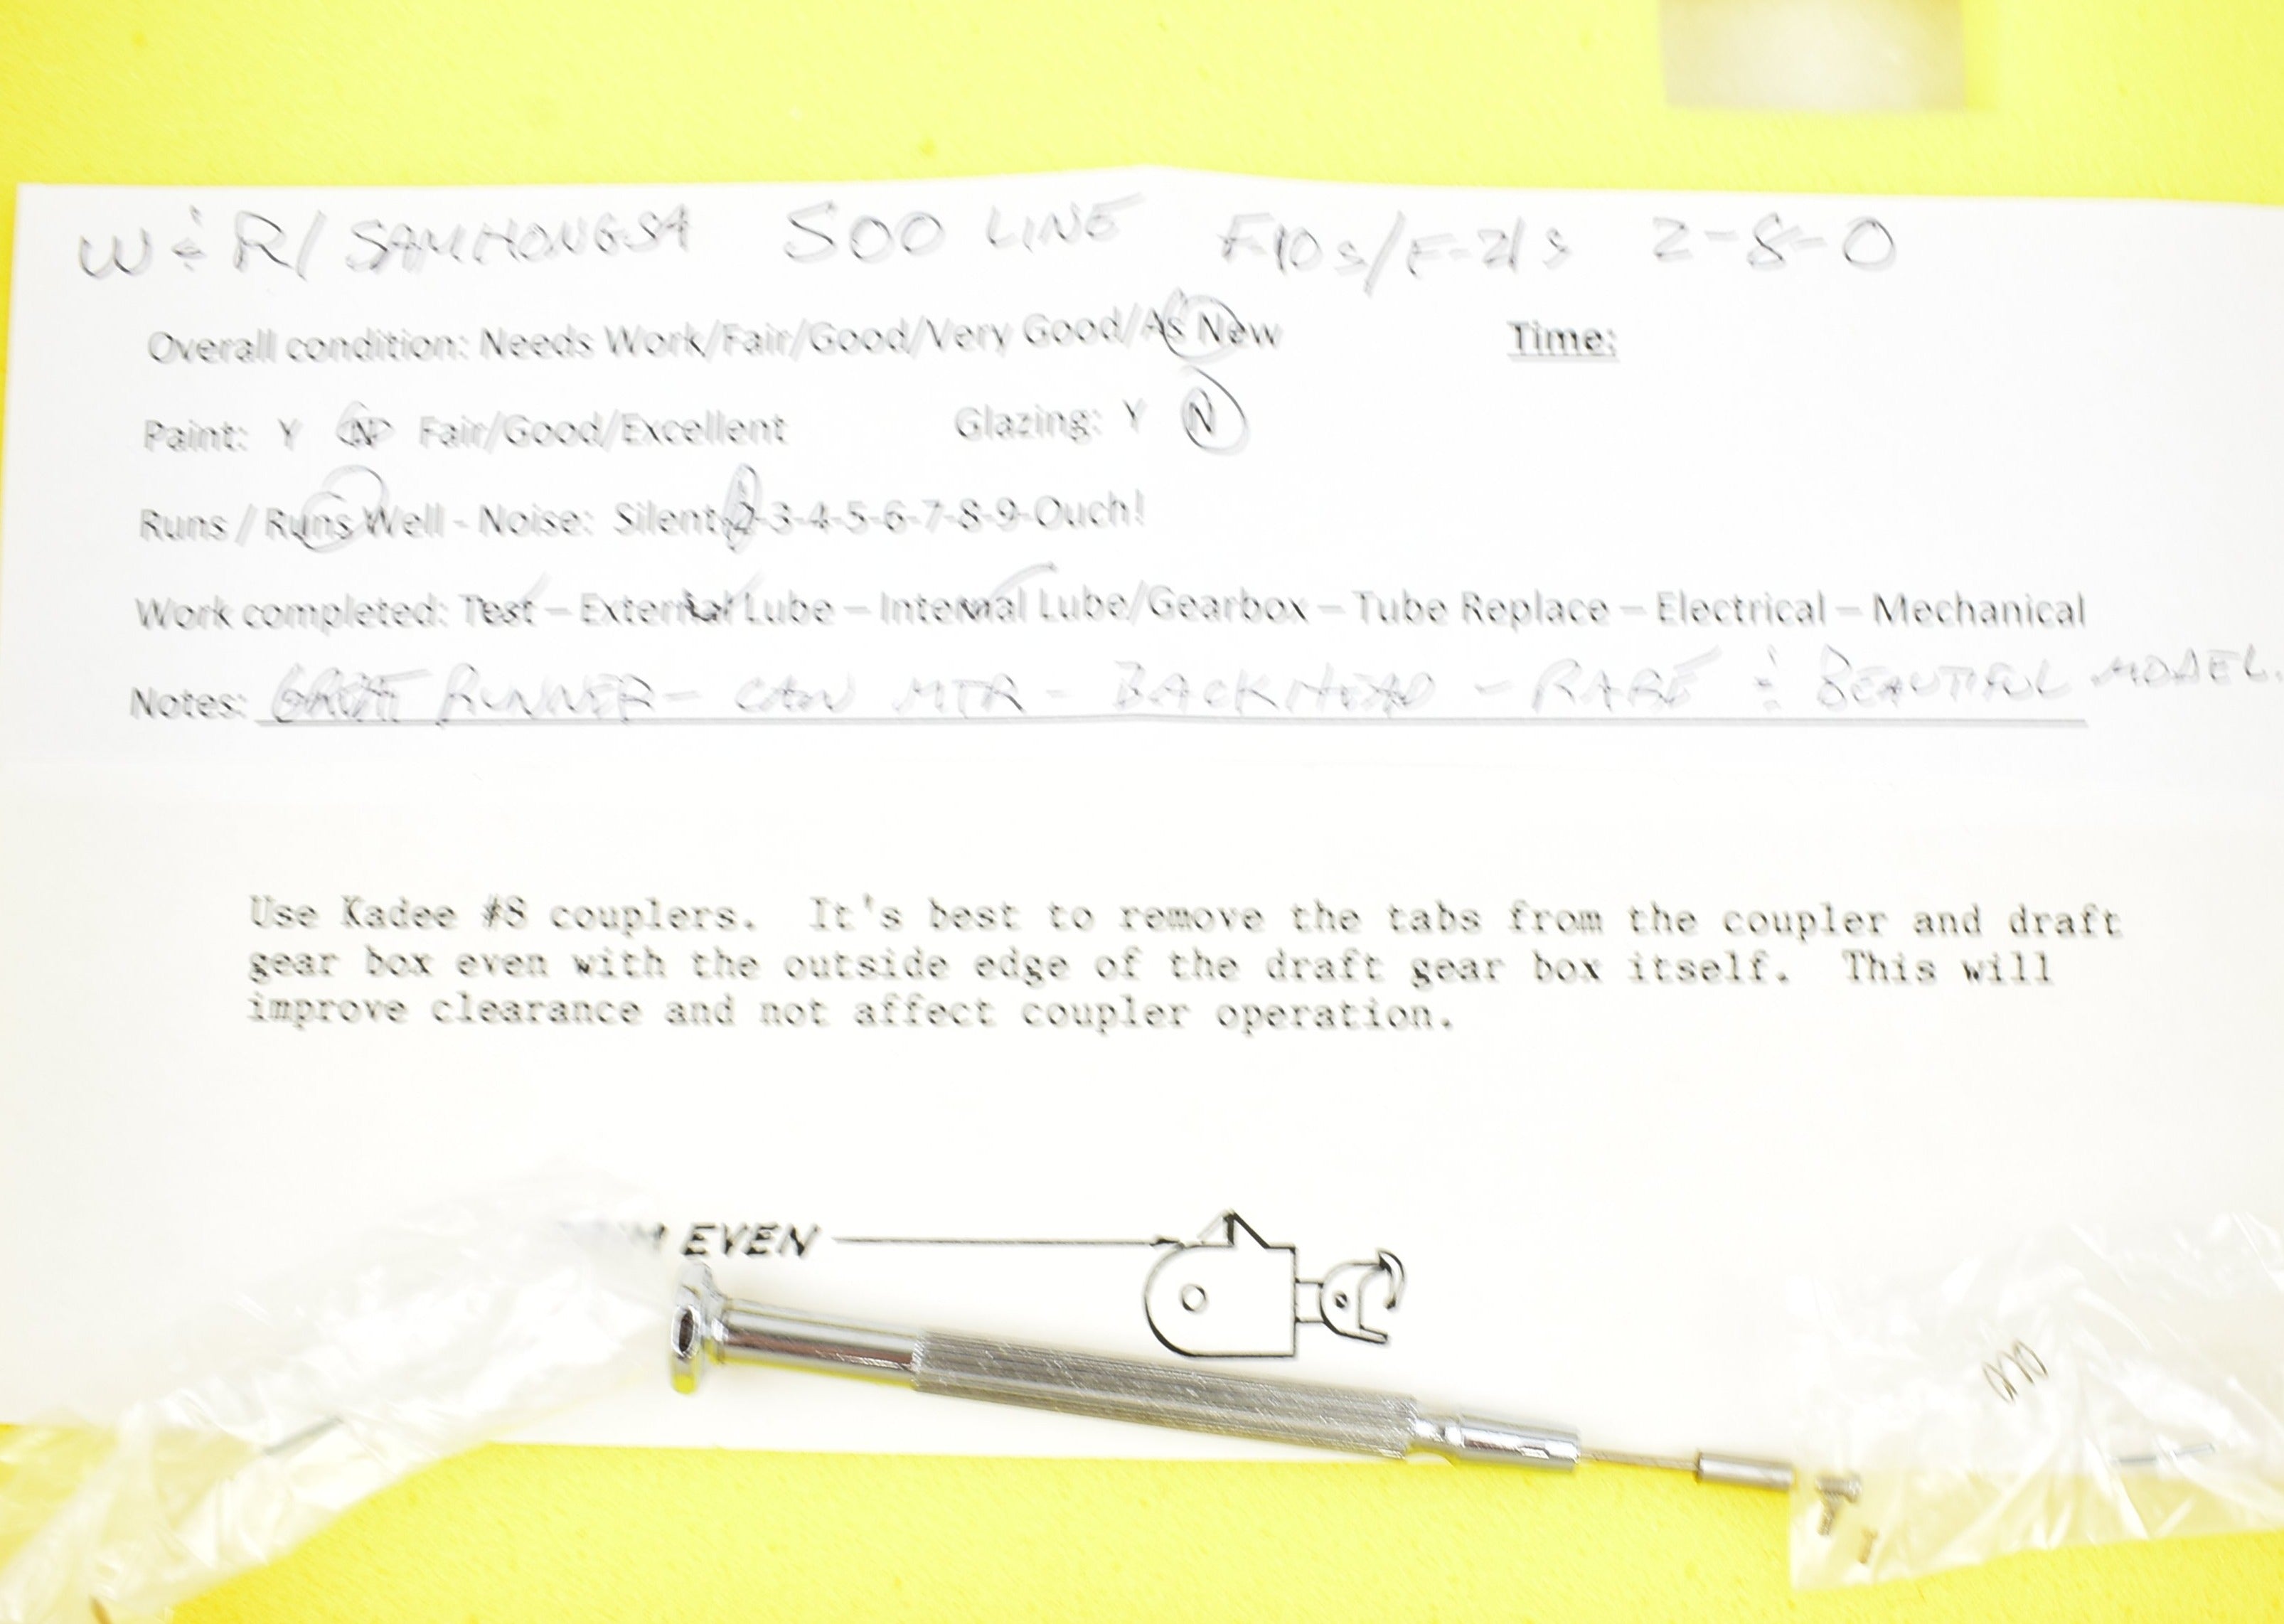 W & R/ SAMHONGSA SOO LINE F-10s/F-21s 2-8-0
Overall condition: Needs Work/Fair/Good/Very Good/As New Time:
Paint: Y N Fair/Good/Excellent Glazing: Y N
Runs / Runs Well - Noise: Silent-2-3-4-5-6-7-8-9-Ouch!
Work completed: Test – External Lube – Internal Lube/Gearbox – Tube Replace – Electrical – Mechanical
Notes: GREAT RUNNER - CAN MTR - BACKHEAD - RARE & BEAUTIFUL MODEL.
Use Kadee #8 couplers. It's best to remove the tabs from the coupler and draft
gear box even with the outside edge of the draft gear box itself. This will
improve clearance and not affect coupler operation.
EVEN